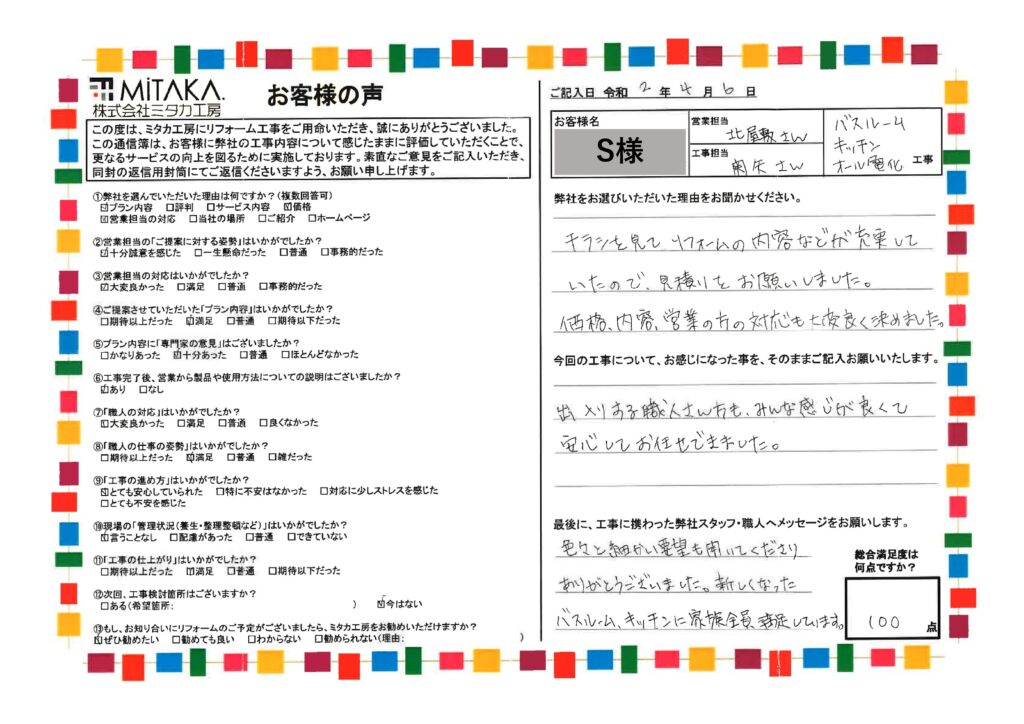 MiTAKA.
株式会社ミタカ工房
お客様の声
この度は、ミタカ工房にリフォーム工事をご用命いただき、誠にありがとうございました。
この通信簿は、お客様に弊社の工事内容について感じたままに評価していただくことで、
更なるサービスの向上を図るために実施しております。素直なご意見をご記入いただき、
同封の返信用封筒にてご返信くださいますよう、お願い申し上げます。
①弊社を選んでいただいた理由は何ですか?(複数回答可)
☑プラン内容 □評判 □サービス内容 ☑価格
☑営業担当の対応 □当社の場所 □ご紹介 □ホームページ
②営業担当の「ご提案に対する姿勢」はいかがでしたか?
☑十分誠意を感じた □一生懸命だった □普通 □事務的だった
③営業担当の対応はいかがでしたか?
☑大変良かった □満足 □普通 □事務的だった
④ご提案させていただいた「プラン内容」はいかがでしたか?
□期待以上だった ☑満足 □普通 □期待以下だった
⑤プラン内容に「専門家の意見」はございましたか?
□かなりあった ☑十分あった □普通 □ほとんどなかった
⑥工事完了後、営業から製品や使用方法についての説明はございましたか?
☑あり □なし
⑦「職人の対応」はいかがでしたか?
☑大変良かった □満足 □普通 □良くなかった
⑧「職人の仕事の姿勢」はいかがでしたか?
□期待以上だった ☑満足 □普通 □雑だった
⑨「工事の進め方」はいかがでしたか?
☑とても安心していられた □特に不安はなかった □対応に少しストレスを感じた
□とても不安を感じた
⑩現場の「管理状況(養生・整理整頓など)」はいかがでしたか?
☑言うことなし □配慮があった □普通 □できていない
⑪「工事の仕上がり」はいかがでしたか?
□期待以上だった ☑満足 □普通 □期待以下だった
⑫次回、工事検討箇所はございますか?
□ある(希望箇所: ) ☑今はない
⑬もし、お知り合いにリフォームのご予定がございましたら、ミタカ工房をお勧めいただけますか?
☑ぜひ勧めたい □勧めても良い □わからない □勧められない(理由: )
ご記入日 令和 2 年 4 月 6 日
お客様名
S様
営業担当
北屋敷さん
工事担当
関矢さん
バスルーム
キッチン
オール電化 工事
弊社をお選びいただいた理由をお聞かせください。
チラシを見て リフォームの内容などが充実して
いたので、見積りをお願いしました。
価格、内容、営業の方の対応も大変良く決めました。
今回の工事について、お感じになった事を、そのままご記入お願いいたします。
出入りする職人さん方も、みんな感じが良くて
安心してお任せできました。
最後に、工事に携わった弊社スタッフ・職人へメッセージをお願いします。
色々と細かい要望も聞いてくださり
ありがとうございました。新しくなった
バスルーム、キッチンに家族全員満足しています。
総合満足度は
何点ですか?
100 点